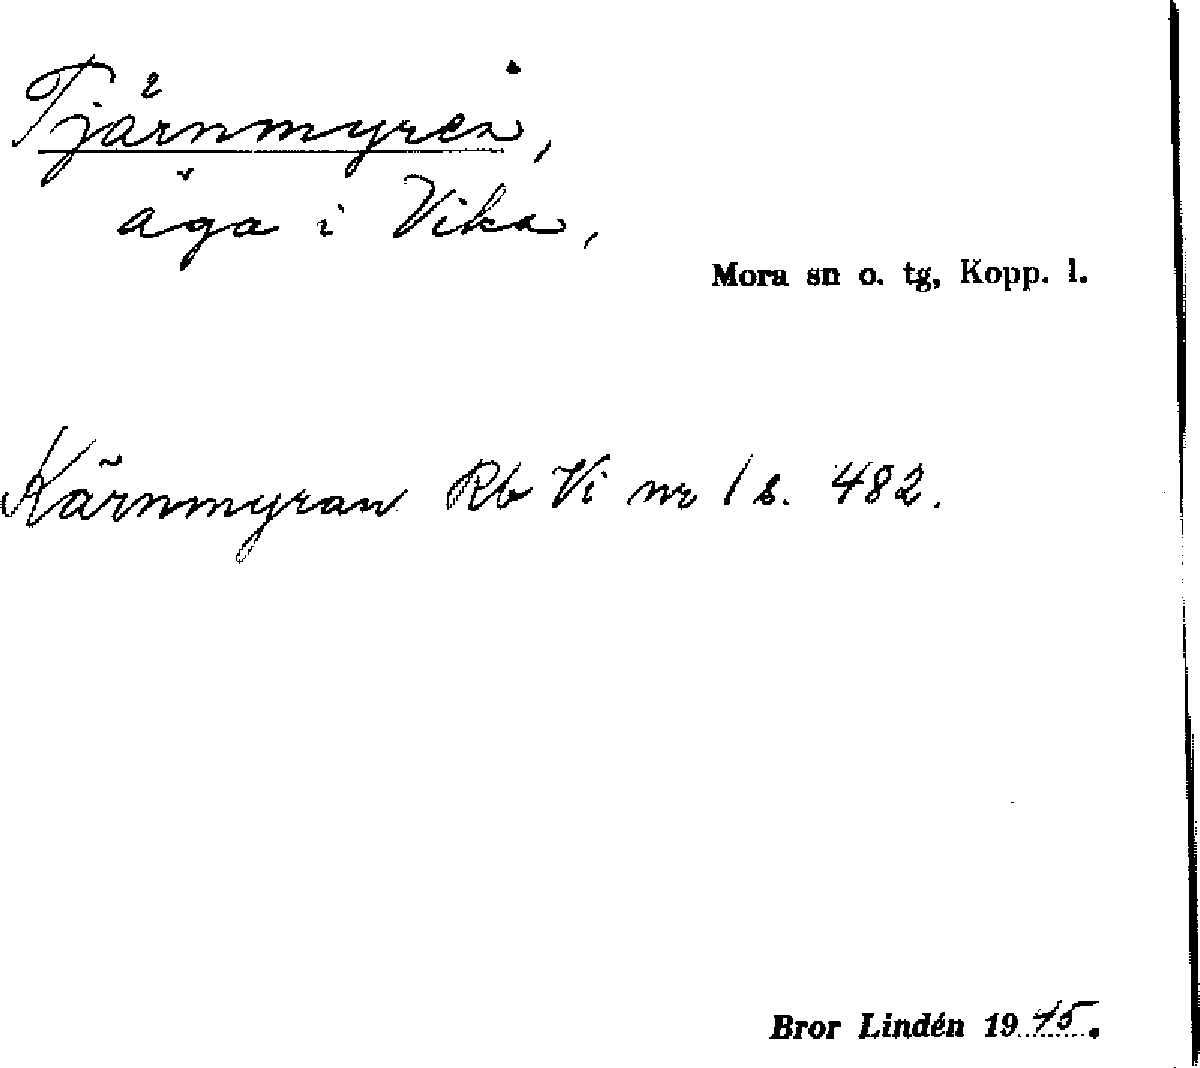 Tjärnmyren,
äga i Vika,
Mora sn o. tg, Kopp. l.
Kärnmyran Rb Vi nr 1 s. 482.
Bror Lindén 1945.